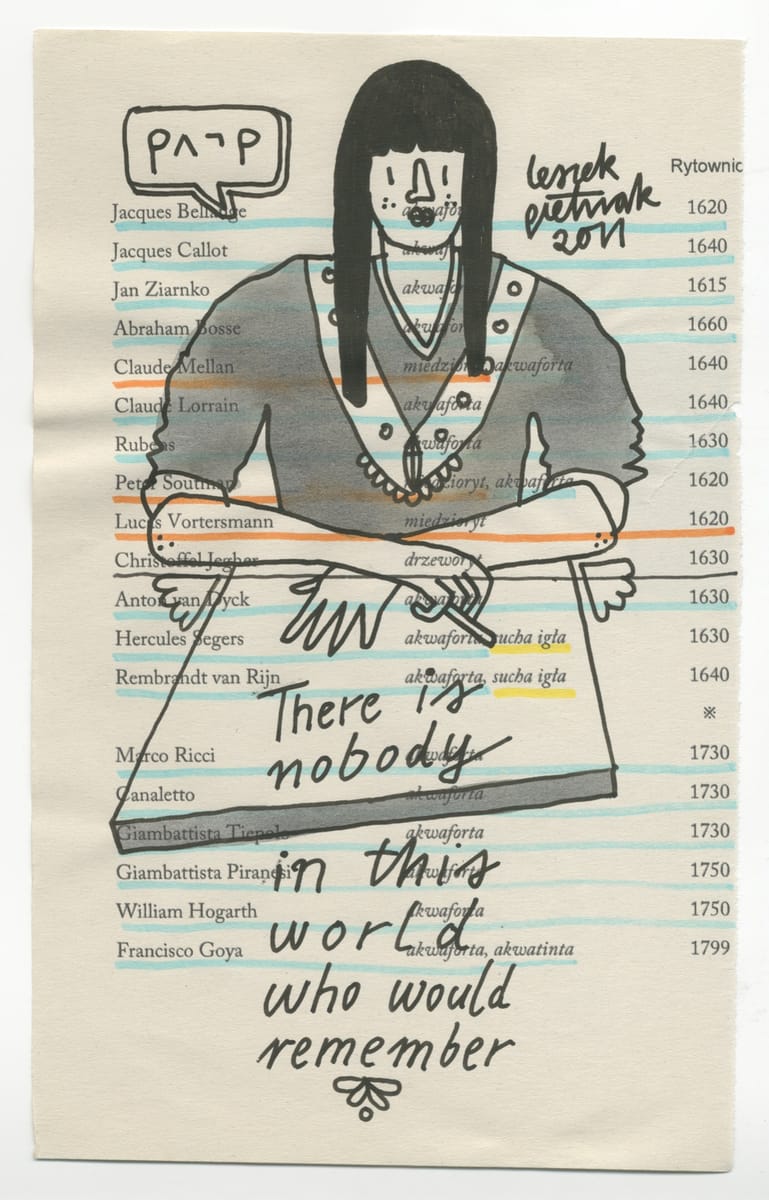 leszek
pietrzak
2011
Rytownic
Jacques Bellange akwaforta 1620
Jacques Callot akwaforta 1640
Jan Ziarnko akwaforta 1615
Abraham Bosse akwaforta 1660
Claude Mellan miedzioryt, akwaforta 1640
Claude Lorrain akwaforta 1640
Rubens akwaforta 1630
Peter Soutman miedzioryt, akwaforta 1620
Lucas Vortersmann miedzioryt 1620
Christoffel Jegher drzeworyt 1630
Anton van Dyck akwaforta 1630
Hercules Segers akwaforta, sucha igła 1630
Rembrandt van Rijn akwaforta, sucha igła 1640
※
Marco Ricci akwaforta 1730
Canaletto akwaforta 1730
Giambattista Tiepolo akwaforta 1730
Giambattista Piranesi akwaforta 1750
William Hogarth akwaforta 1750
Francisco Goya akwaforta, akwatinta 1799
There is
nobody
in this
world
who would
remember